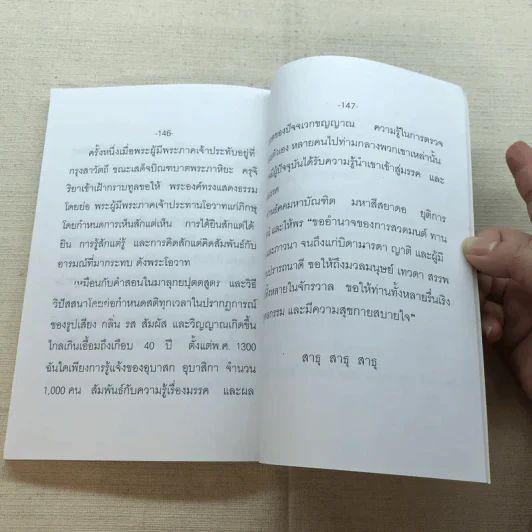 -146-
ครั้งหนึ่งเมื่อพระผู้มีพระภาคเจ้าประทับอยู่ที่
กรุงสาวัตถี ขณะเสด็จบิณฑบาตพระภาหิยะ ครุจิ
ริยาเข้าเฝ้ากราบทูลขอให้ พระองค์ทรงแสดงธรรม
โดยย่อ พระผู้มีพระภาคเจ้าประทานโอวาทแก่ภิกษุ
โดยกำหนดการเห็นสักแต่เห็น การได้ยินสักแต่ได้
ยิน การรู้สักแต่รู้ และการคิดสักแต่คิดสัมพันธ์กับ
อารมณ์ที่มากระทบ ดังพระโอวาท
เหมือนกับคำสอนในมาลุกยปุตตสูตร และวิธี
วิปัสสนาโดยย่อกำหนดสติทุกเวลาในปรากฏการณ์
ของรูปเสียง กลิ่น รส สัมผัส และวิญญาณเกิดขึ้น
ไกลเกินเอื้อมถึงเกือบ 40 ปี ตั้งแต่พ.ศ. 1300
ฉันใดเพียงการรู้แจ้งของอุบาสก อุบาสิกา จำนวน
1,000 คน สัมพันธ์กับความรู้เรื่องมรรค และผล
-147-
ของปัจจเวกขญญาณ ความรู้ในการตรวจ
หลายคนไปท่ามกลางพวกเขาเหล่านั้น
ผู้ปัจจุบันได้รับความรู้นำเขาเข้าสู่มรรค และ
อัคคมหาบัณฑิต มหาสีสยาดอ ยุติการ
และให้พร "ขออำนาจของการสวดมนต์ ทาน
ภาวนา จนถึงแก่บิดามารดา ญาติ และผู้มี
ปรารถนาดี ขอให้ถึงมวลมนุษย์ เทวดา สรรพ
ในจักรวาล ขอให้ท่านทั้งหลายรื่นเริง
และมีความสุขกายสบายใจ"
สาธุ สาธุ สาธุ